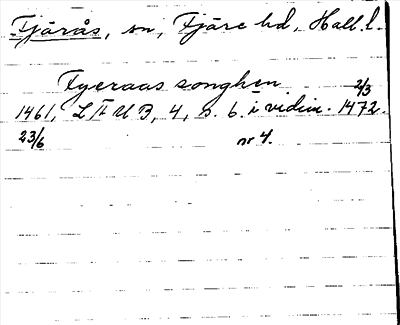 Fjärås, sn, Fjäre hd, Hall. l.
Fyeraas songhen 2/3
1461, LFUB, 4, s. 6. i vidim. 1472.
23/6 nr 4.